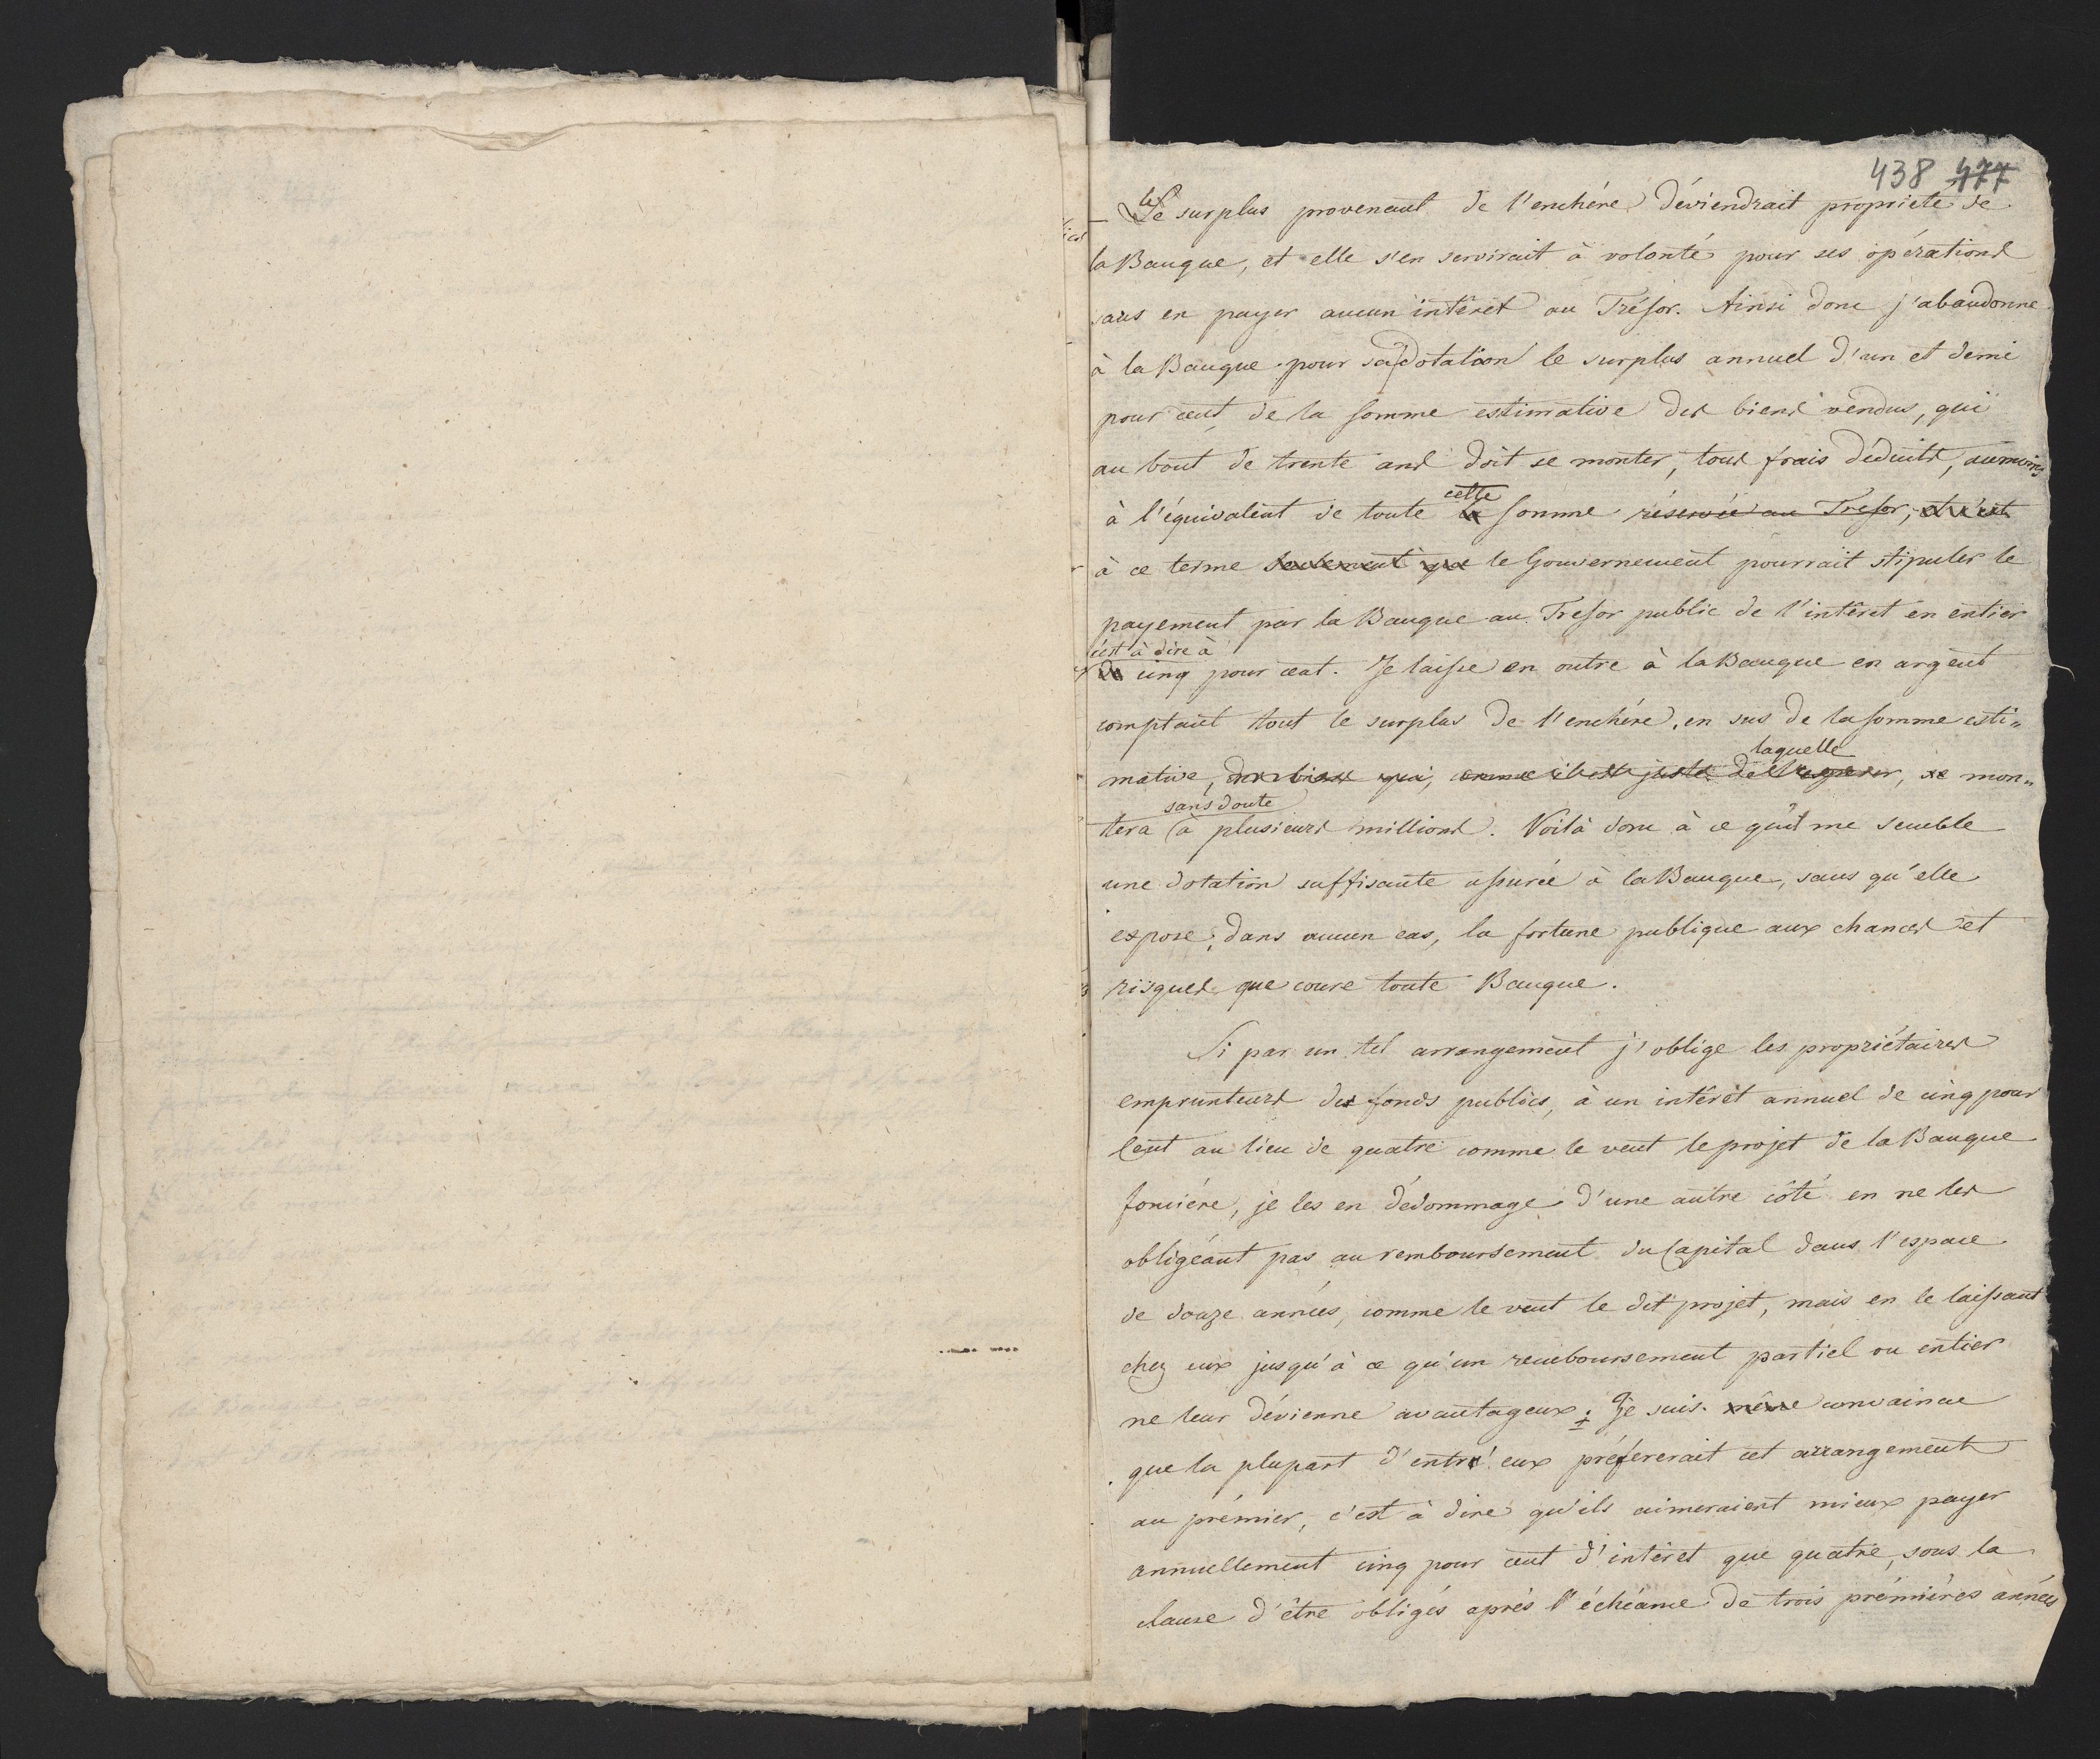 438 477
— Le surplus provenant de l'enchére déviendrait propriété de
la Banque, et elle s'en servirait à volonté pour ses opérations
sans en payer aucun intérêt au Trésor. Ainsi donc j'abandonne
à la Banque pour sa dotation le surplus annuel d'un et demi
pour cent de la somme estimative des biens vendus, qui
au bout de trente ans doit se monter, tous frais déduits, aumoins
cette
à l'équivalent de toute la somme réservée au Tresor, et c'est
à ce terme seulement que le Gouvernement pourrait stipuler le
payement par la Banque au Tresor public de l'intêret en entier
c'est à dire à
de cinq pour cent. Je laisse en outre à la Banque en argent
comptant tout le surplus de l'enchére, en sus de la somme esti„
laquelle
mative, des biens qui, comme il est juste de l'esperer, se mon„
sans doute
tera à plusieurs millions. Voilà donc à ce qu'il me semble
une dotation suffisante assurée à la Banque, sans qu'elle
expose, dans aucun cas, la fortune publique aux chances et
risques que coure toute Banque.
Si par un tel arrangement j'oblige les propriétaires
emprunteurs des fonds publics, à un intérêt annuel de cinq pour
Cent au lieu de quatre comme le veut le projet de la Banque
fonciére, je les en dédommage d'une autre côté en ne les
obligéant pas au remboursement du Capital dans l'espace
de douze années, comme le veut le dit projet, mais en le laissant
chez eux jusqu'à ce qu'un remboursement partiel ou entier
ne leur dévienne avantageux; Je suis même convaincu
que la plupart d'entr'eux préfererait cet arrangement
au prémier, c'est à dire qu'ils aimeraient mieux payer
annuellement cinq pour cent d'intéret que quatre, sous la
clause d'être obligés aprés l'échéance de trois prémiéres années